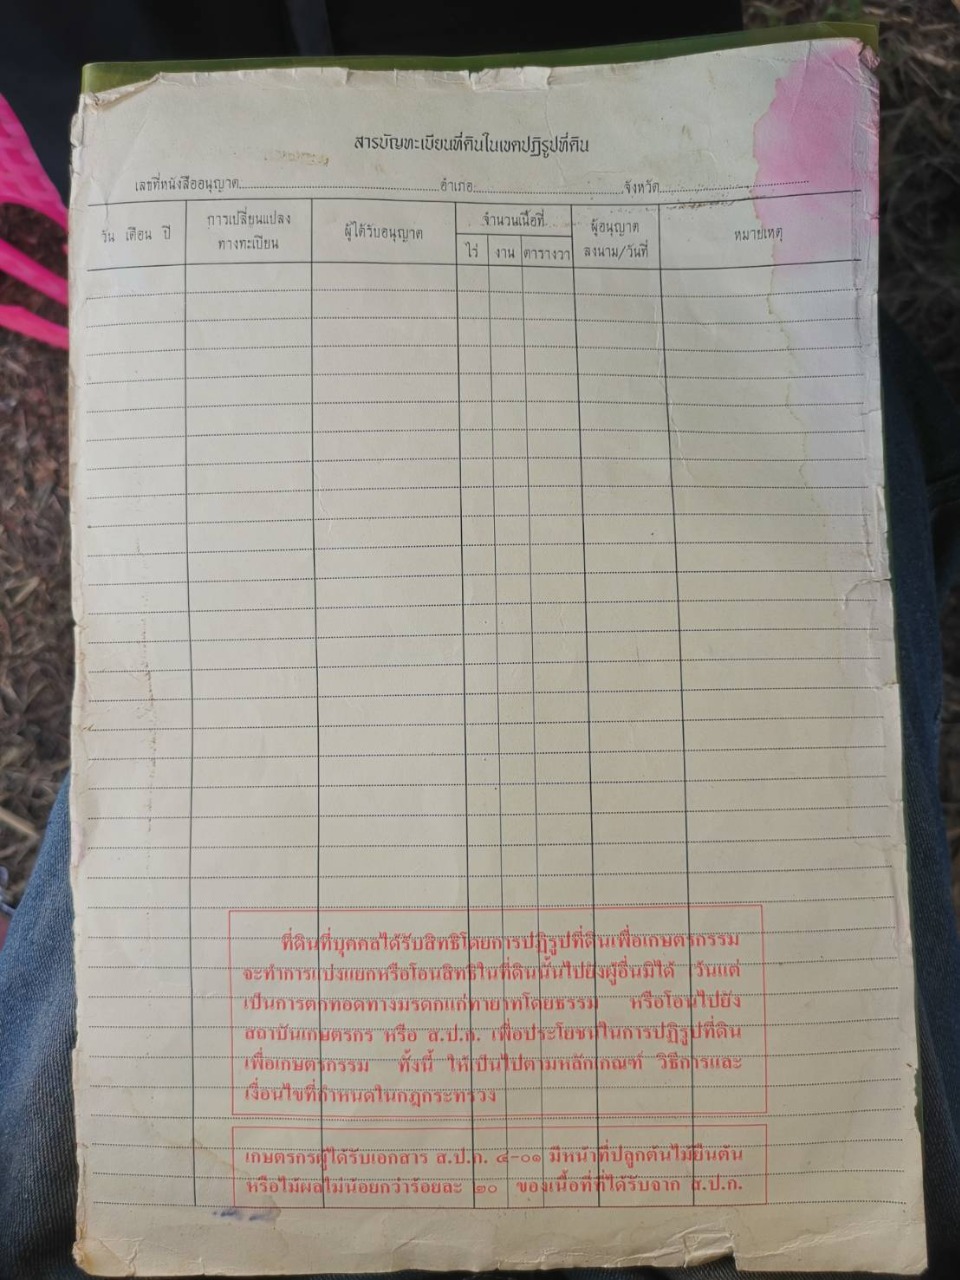 สารบัญทะเบียนที่ดินในเขตปฏิรูปที่ดิน
เลขที่หนังสืออนุญาต อำเภอ จังหวัด
วัน เดือน ปี การเปลี่ยนแปลง ผู้ได้รับอนุญาต จำนวนเนื้อที่ ผู้อนุญาต หมายเหตุ
ทางทะเบียน ไร่ งาน ตารางวา ลงนาม/วันที่
ที่ดินที่บุคคลได้รับสิทธิโดยการปฏิรูปที่ดินเพื่อเกษตรกรรม
จะทำการแบ่งแยกหรือโอนสิทธิในที่ดินนั้นไปยังผู้อื่นมิได้ เว้นแต่
เป็นการตกทอดทางมรดกแก่ทายาทโดยธรรม หรือโอนไปยัง
สถาบันเกษตรกร หรือ ส.ป.ก. เพื่อประโยชน์ในการปฏิรูปที่ดิน
เพื่อเกษตรกรรม ทั้งนี้ ให้เป็นไปตามหลักเกณฑ์ วิธีการและ
เงื่อนไขที่กำหนดในกฎกระทรวง
เกษตรกรผู้ได้รับเอกสาร ส.ป.ก. ๔-๐๑ มีหน้าที่ปลูกต้นไม้ยืนต้น
หรือไม้ผลไม่น้อยกว่าร้อยละ ๑๐ ของเนื้อที่ที่ได้รับจาก ส.ป.ก.